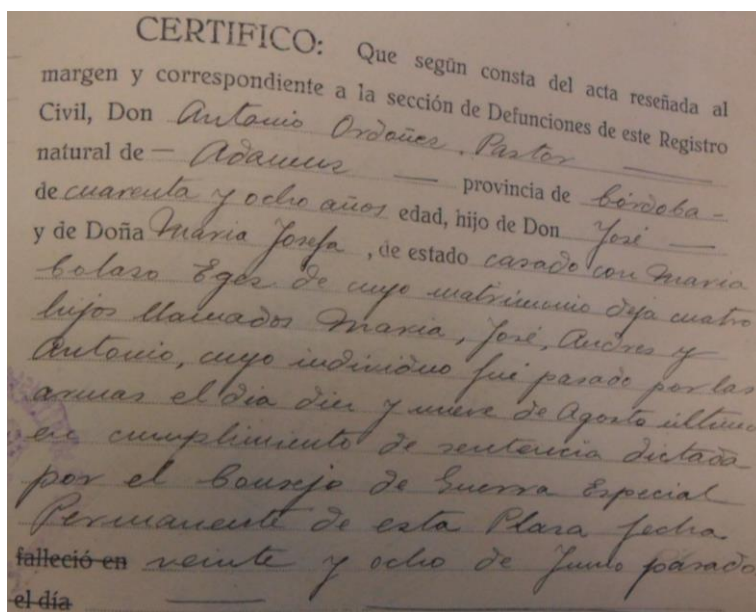 CERTIFICO: Que según consta del acta reseñada al
margen y correspondiente a la sección de Defunciones de este Registro
Civil, Don Antonio Ordoñez Pastor
natural de — Adamuz — provincia de Córdoba -
de cuarenta y ocho años edad, hijo de Don José —
y de Doña Maria Josefa, de estado casado con Maria
de cuyo matrimonio deja cuatro
hijos llamados Maria, José, Andres y
Antonio, cuyo individuo fué pasado por las
armas el dia diez y nueve de Agosto último
en cumplimiento de sentencia dictada
por el Consejo de Guerra Especial
Permanente de esta Plaza fecha
falleció en veinte y ocho de Junio pasado
el día